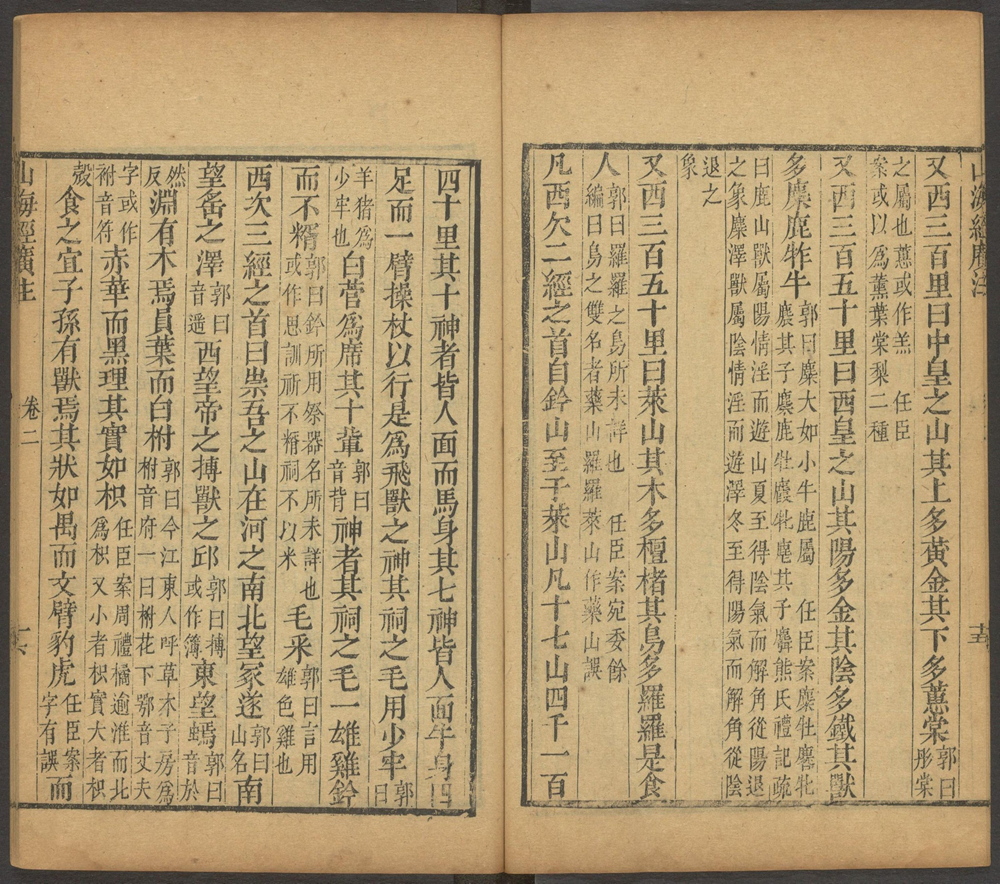 山海經廣注
又西三百里曰中皇之山其上多黃金其下多蕙棠郭曰彤棠
之屬也蕙或作羔 任臣
案或以爲薰葉棠梨二種
又西三百五十里曰西皇之山其陽多金其陰多鐵其獸
多麋鹿㸲牛郭曰麋大如小牛鹿屬 任臣案麋牡麔牝
麎其子麌鹿牡麚牝麀其子麛熊氏禮記疏
曰鹿山獸屬陽情淫而遊山夏至得陰氣而解角從陽退
之象麋澤獸屬陰情淫而遊澤冬至得陽氣而解角從陰
退之
象
又西三百五十里曰萊山其木多檀楮其鳥多羅羅是食
人郭曰羅羅之鳥所未詳也 任臣案宛委餘
編曰鳥之雙名者藥山羅羅萊山作藥山誤
凡西次二經之首自鈐山至于萊山凡十七山四千一百
四十里其十神者皆人面而馬身其七神皆人面牛身四
足而一臂操杖以行是爲飛獸之神其祠之毛用少牢郭曰
羊猪爲
少牢也白菅爲席其十輩郭曰
音背神者其祠之毛一雄雞鈐
而不糈郭曰鈐所用祭器名所未詳也
或作思訓祈不糈祠不以米毛采郭曰言用
雄色雞也
西次三經之首曰崇吾之山在河之南北望冢遂郭曰
山名南
望䍃之澤郭曰
音遥西望帝之搏獸之邱郭曰搏
或作簿東望䗡郭曰
音於
然
反淵有木焉員葉而白柎郭曰今江東人呼草木子房爲
柎音府一曰柎花下鄂音丈夫
字或作
柎音符赤華而黑理其實如枳任臣案周禮橘逾淮而北
爲枳又小者枳實大者枳
殼食之宜子孫有獸焉其狀如禺而文臂豹虎任臣案
字有誤而
山海經廣注 卷二